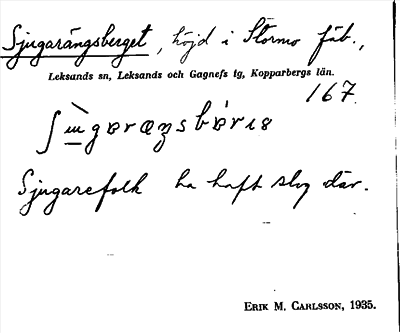 Sjugarängsberget, höjd i Stormo fäb.,
Leksands sn, Leksands och Gagnefs tg, Kopparbergs län.
167.
Sjugarefolk ha haft slog där.
ERIK M. CARLSSON, 1935.